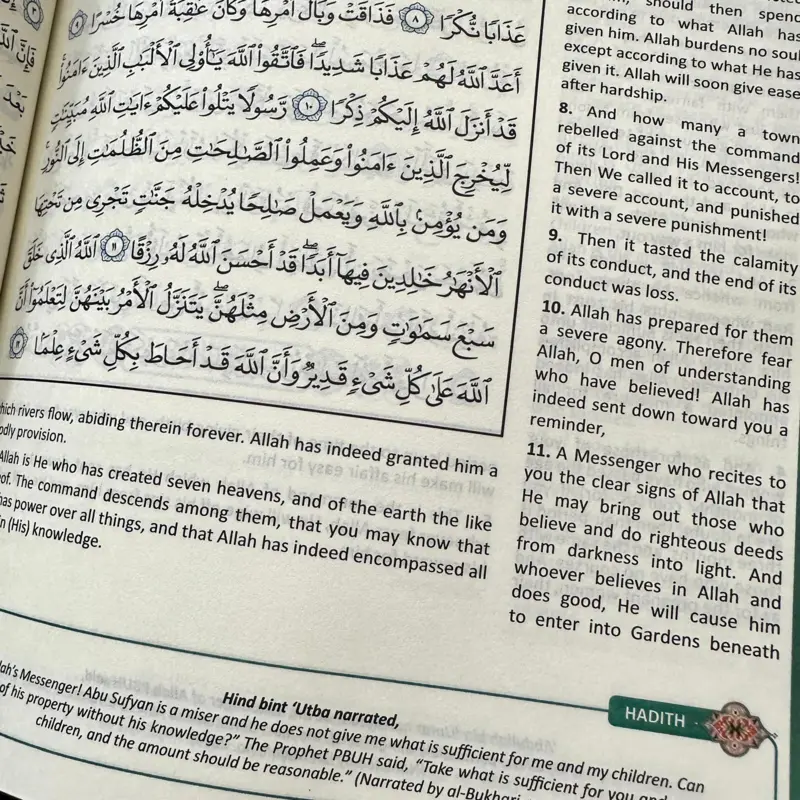 عَذَابًا نُّكْرًا ٨ فَذَاقَتْ وَبَالَ أَمْرِهَا وَكَانَ عَٰقِبَةُ أَمْرِهَا خُسْرًا ٩
أَعَدَّ ٱللَّهُ لَهُمْ عَذَابًا شَدِيدًا ۖ فَٱتَّقُوا۟ ٱللَّهَ يَٰٓأُو۟لِى ٱلْأَلْبَٰبِ ٱلَّذِينَ ءَامَنُوا۟ ۚ
قَدْ أَنزَلَ ٱللَّهُ إِلَيْكُمْ ذِكْرًا ١٠ رَّسُولًا يَتْلُوا۟ عَلَيْكُمْ ءَايَٰتِ ٱللَّهِ مُبَيِّنَٰتٍ
لِّيُخْرِجَ ٱلَّذِينَ ءَامَنُوا۟ وَعَمِلُوا۟ ٱلصَّٰلِحَٰتِ مِنَ ٱلظُّلُمَٰتِ إِلَى ٱلنُّورِ ۚ
وَمَن يُؤْمِنۢ بِٱللَّهِ وَيَعْمَلْ صَٰلِحًا يُدْخِلْهُ جَنَّٰتٍ تَجْرِى مِن تَحْتِهَا
ٱلْأَنْهَٰرُ خَٰلِدِينَ فِيهَآ أَبَدًا ۖ قَدْ أَحْسَنَ ٱللَّهُ لَهُۥ رِزْقًا ١١ ٱللَّهُ ٱلَّذِى خَلَقَ
سَبْعَ سَمَٰوَٰتٍ وَمِنَ ٱلْأَرْضِ مِثْلَهُنَّ ۖ يَتَنَزَّلُ ٱلْأَمْرُ بَيْنَهُنَّ لِتَعْلَمُوٓا۟ أَنَّ
ٱللَّهَ عَلَىٰ كُلِّ شَىْءٍ قَدِيرٌ وَأَنَّ ٱللَّهَ قَدْ أَحَاطَ بِكُلِّ شَىْءٍ عِلْمًۢا ١٢
should then spend
according to what Allah has
given him. Allah burdens no soul
except according to what He has
given it. Allah will soon give ease
after hardship.
8. And how many a town
rebelled against the command
of its Lord and His Messengers!
Then We called it to account, to
a severe account, and punished
it with a severe punishment!
9. Then it tasted the calamity
of its conduct, and the end of its
conduct was loss.
10. Allah has prepared for them
a severe agony. Therefore fear
Allah, O men of understanding
who have believed! Allah has
indeed sent down toward you a
reminder,
11. A Messenger who recites to
you the clear signs of Allah that
He may bring out those who
believe and do righteous deeds
from darkness into light. And
whoever believes in Allah and
does good, He will cause him
to enter into Gardens beneath
which rivers flow, abiding therein forever. Allah has indeed granted him a
provision.
Allah is He who has created seven heavens, and of the earth the like
The command descends among them, that you may know that
has power over all things, and that Allah has indeed encompassed all
in (His) knowledge.
HADITH
Hind bint ‘Utba narrated,
Messenger! Abu Sufyan is a miser and he does not give me what is sufficient for me and my children. Can
of his property without his knowledge?” The Prophet PBUH said, “Take what is sufficient for you and
children, and the amount should be reasonable.” (Narrated by al-Bukhari